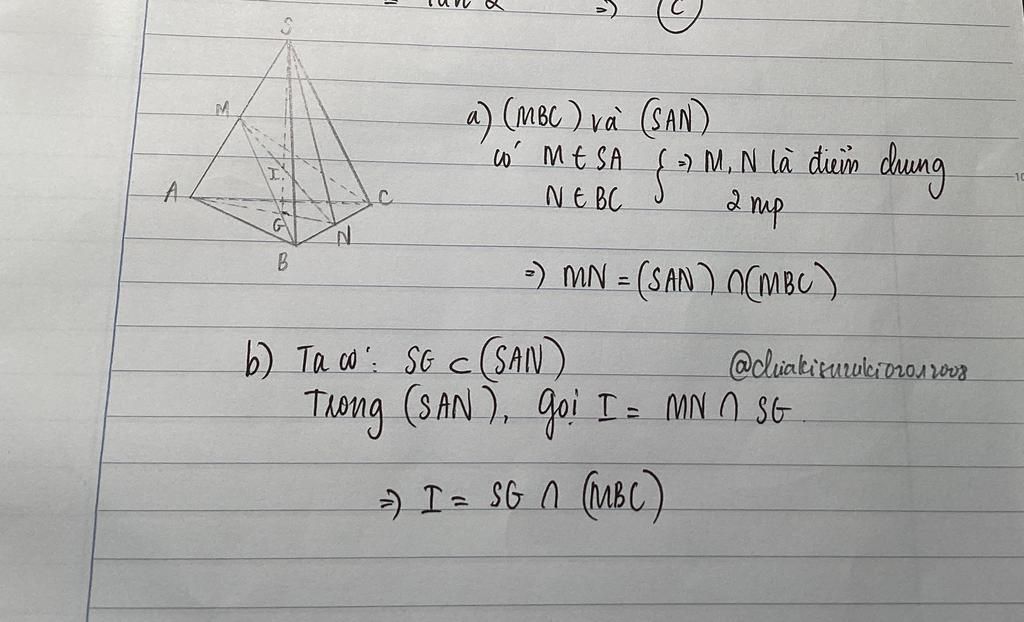 = tan α => (C)
S
M
I
A
C
G
N
B
a) (MBC) và (SAN)
có M ∈ SA } => M, N là điểm chung
N ∈ BC 2 mp
=> MN = (SAN) ∩ (MBC)
b) Ta có: SG ⊂ (SAN)
@chiakisuzuki02012008
Trong (SAN), gọi I = MN ∩ SG.
=> I = SG ∩ (MBC)
10